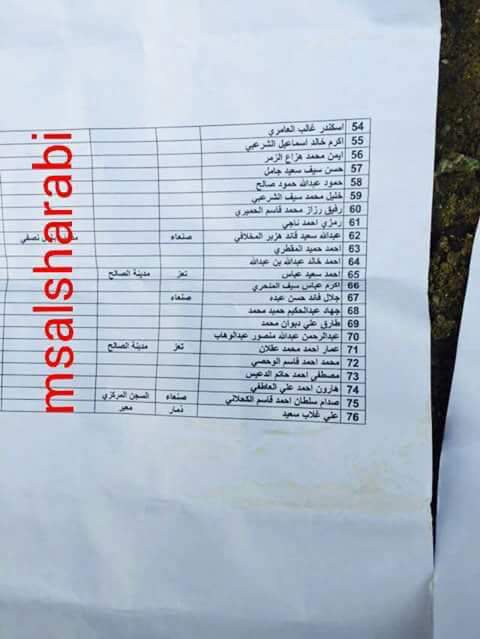 54 اسكندر غالب العامري
55 اكرم خالد اسماعيل الشرعبي
56 ايمن محمد هزاع الزمر
57 حسن سيف سعيد جامل
58 حمود عبدالله حمود صالح
59 خليل محمد سيف الشرعبي
60 رفيق رزاز محمد قاسم الحميري
61 رمزي احمد ناجي
62 عبدالله سعيد قائد هزبر المخلافي صنعاء نصفي
63 احمد حميد المقطري
64 احمد خالد عبدالله بن عبدالله
65 احمد سعيد عباس تعز مدينة الصالح
66 اكرم عباس سيف المنحري
67 جلال قائد حسن عبده صنعاء
68 جهاد عبدالحكيم حميد محمد
69 طارق علي ديوان محمد
70 عبدالرحمن عبدالله منصور عبدالوهاب
71 عمار احمد محمد عقلان تعز مدينة الصالح
72 محمد احمد قاسم الوحصي
73 مصطفى احمد حاتم الدعيس
74 هارون احمد علي العاطفي
75 صدام سلطان احمد قاسم الكحلاني صنعاء السجن المركزي
76 علي غلاب سعيد ذمار معبر
msalsharabi